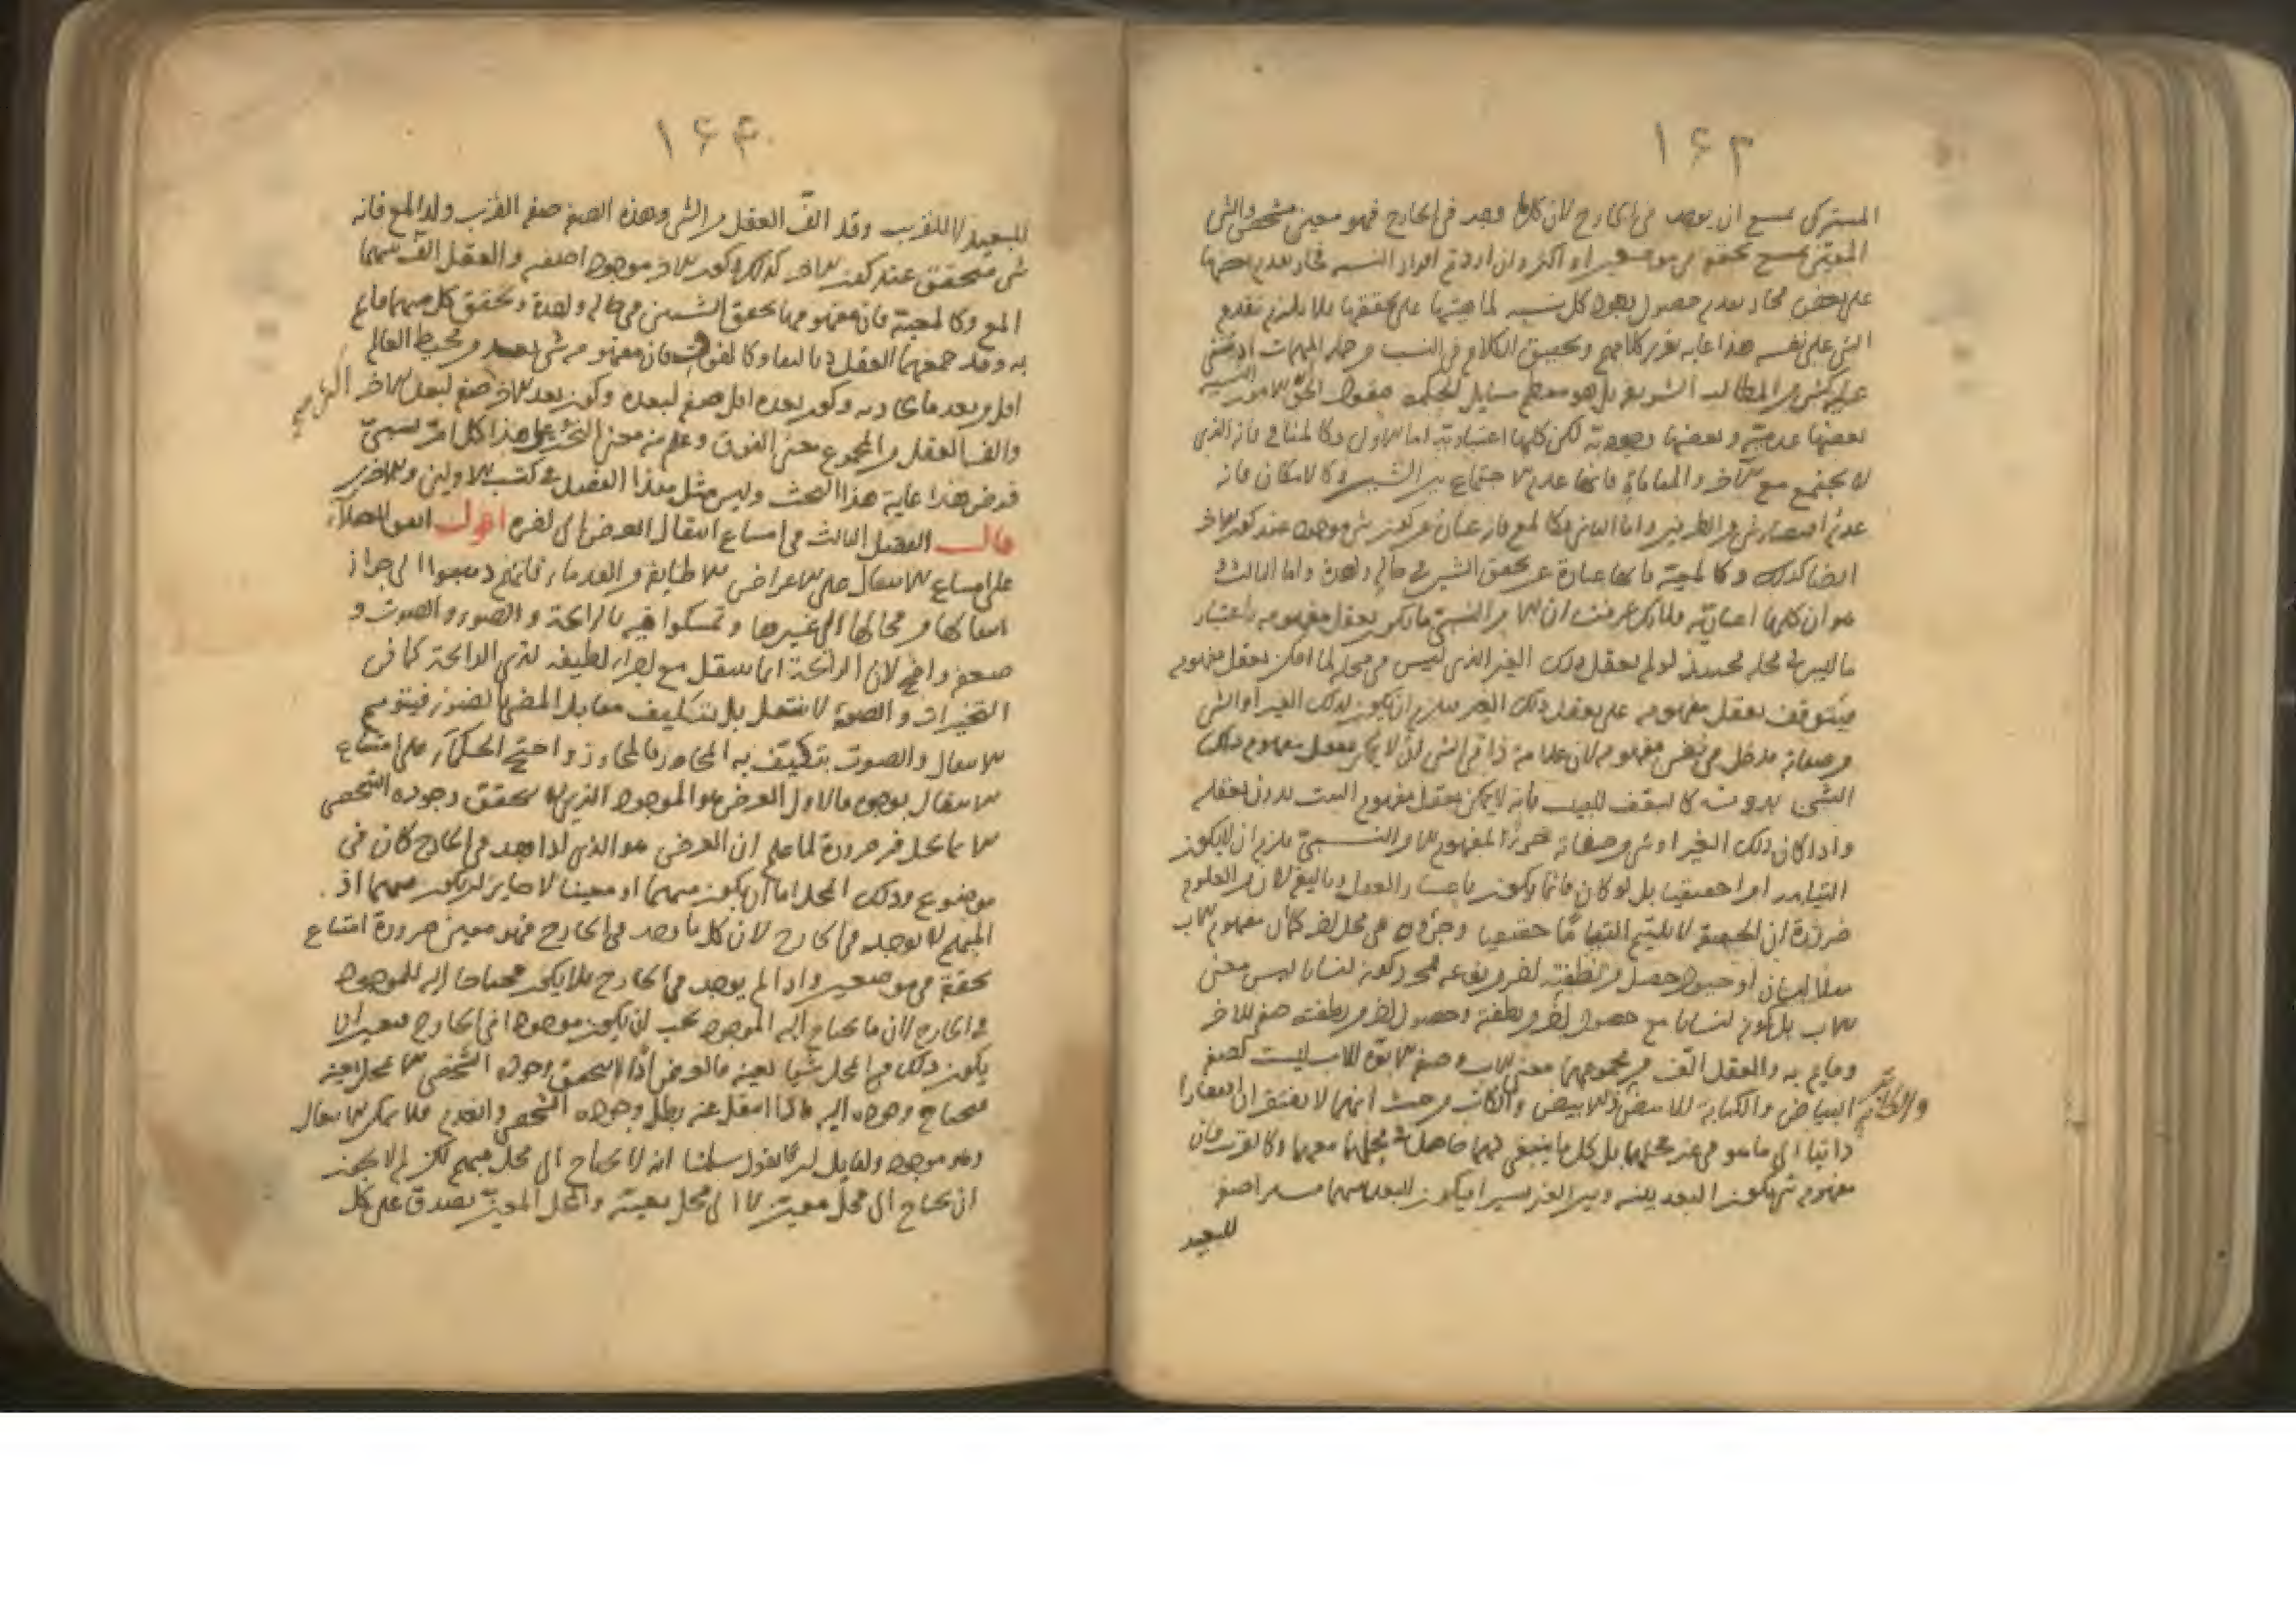 ۱۶۳
المشترك يمتنع ان يوجد في الخارج لان كلما وجد في الخارج فهو معين مشخص والشي
على بعض محاد بعدم حصول وجود كل نسبه لماهيتها على تحققها فلا يلزم تقدم
الشي على نفسه هذا غاية تقرير كلامهم وتحقيق الكلام في النسب من جملة المهمات اذ يبتنى
عليه كثير من المطالب الشريفة بل هو معظم مسايل الحكمة فنقول الحق ان الامور النسبية
بعضها عدمية وبعضها وجودية لكن كلها اعتبارية اما الاول فكالمنافي فانه الذي
لا يجتمع مع الاخر والمنافاة فانها عدم الاجتماع بين الشيئين وكالامكان فانه
عدم اقتضاء شي من الطرفين واما الثاني فكالمع فانه عبارة عن كون شي موجود عند كون الاخر
ايضا كذلك وكالمعية فانها عبارة عن تحقق الشيئين في حالة واحدة واما الثالث
هو ان كلها اعتبارية فلانك عرفت ان الامر النسبي ما يكون تعقل مفهومه باعتبار
ما ليس في محله فحينئذ لو لم يعقل ذلك الغير الذي ليس في محله لما امكن تعقل مفهومه
فيتوقف تعقل مفهومه على تعقل ذلك الغير فيلزم ان يكون لذلك الغير او لشي
من صفاته مدخل في نفس مفهومه لان علامة ذاتي الشي ان لا يمكن تعقل مفهوم ذلك
الشي بدونه كالسقف للبيت فانه لا يمكن تعقل مفهوم البيت بدون تعقله
واذا كان ذلك الغير او شي من صفاته جزءا لمفهوم الامر النسبي يلزم ان لا يكون
التيامه امرا حقيقيا بل لو كان فانما يكون باعتبار العقل وتاليفه لانه من المعلوم
ضرورة ان الحقيقة لا يلتئم التياما حقيقيا وجزؤه في محل اخر كما ان مفهوم الاب
مثلا انسان او حيوان حصل من نطفته اخر من نوعه فمجرد كونه انسانا ليس معنى
الاب بل كونه انسانا مع حصول اخر من نطفته وحصول اخر من نطفته صفة للاخر
وقايم به والعقل الف من مجموعهما معنى الاب وصفة الابوة للاب ليست كصفة
البياض والكتابة للابيض والكاتب من حيث انهما لا يفتقران افتقارا
ذاتيا الى ما هو في غير محلهما بل كل ما ينبغي لهما حاصل في محلهما معهما وكالقرب فان
مفهومه شي يكون البعد بينه وبين الاخر يسيرا فيكون البعد بينهما يسيرا صفة
للبعيد
۱۶۴
للبعيد لا للقريب وقد الف العقل من الشي وهذه الصفة صفة القرب ولذا المع فانه
شي متحقق عند كون الاخر كذلك وكون الاخر موجودا صفة والعقل الف منهما
المع وكالمعية فان مفهومها تحقق الشيئين في حالة واحدة وتحقق كل منهما قايم
به وقد جمعهما العقل وكالفوق فان مفهومه شي بعده من محيط العالم
اقل من بعد ما يحاذيه وكون بعده اقل صفة لبعده وكون بعد الاخر صفة لبعد الاخر
والف العقل من المجموع معنى الفوق وعلم منه معنى التحت وعلى هذا كل امر نسبي
فرض هذا غاية هذا البحث وليس مثل هذا التفصيل في كتب الاولين والاخرين
قال الفصل الثالث في امتناع انتقال العرض الى اخره اقول اتفق العقلاء
على امتناع الانتقال على الاعراض الا طايفة من القدماء فانهم ذهبوا الى جواز
انتقالها من محالها الى غيرها وتمسكوا فيه بالرايحة والضوء والصوت و
ضعفه واضح لان الرايحة انما تنتقل مع اجزاء لطيفة لذي الرايحة كما في
التبخيرات والضوء لا ينتقل بل يتكيف مقابل المضي بالضوء فيتوهم
الانتقال والصوت يتكيف به المجاور فالمجاور واحتج الحكماء على امتناع
الانتقال بوجوه فالاول العرض هو الموجود الذي لا يتحقق وجوده الشخصي
الا بما يحل فيه ضرورة لما علم ان العرض هو الذي اذا وجد في الخارج كان في
موضوع وذلك المحل اما ان يكون مبهما او معينا لا جايز ان يكون مبهما اذ
المبهم لا يوجد في الخارج لان كل ما وجد في الخارج فهو معين ضرورة امتناع
تحققه في موضعين واذا لم يوجد في الخارج فلا يكون محتاجا اليه للموجود
في الخارج لان ما يحتاج اليه الموجود يجب ان يكون موجودا في الخارج فتعين ان
يكون ذلك المحل شيئا بعينه فالعرض اذا لا يتحقق وجوده الشخصي الا بمحل بعينه
فيحتاج وجوده اليه فاذا انتقل عنه بطل وجوده الشخصي وانعدم فلا يمكن الانتقال
وهو موجود ولقايل ان يقول سلمنا انه لا يحتاج الى محل مبهم لكن لم لا يجوز
ان يحتاج الى محل معين لا الى محل بعينه والمحل المعين يصدق على كل